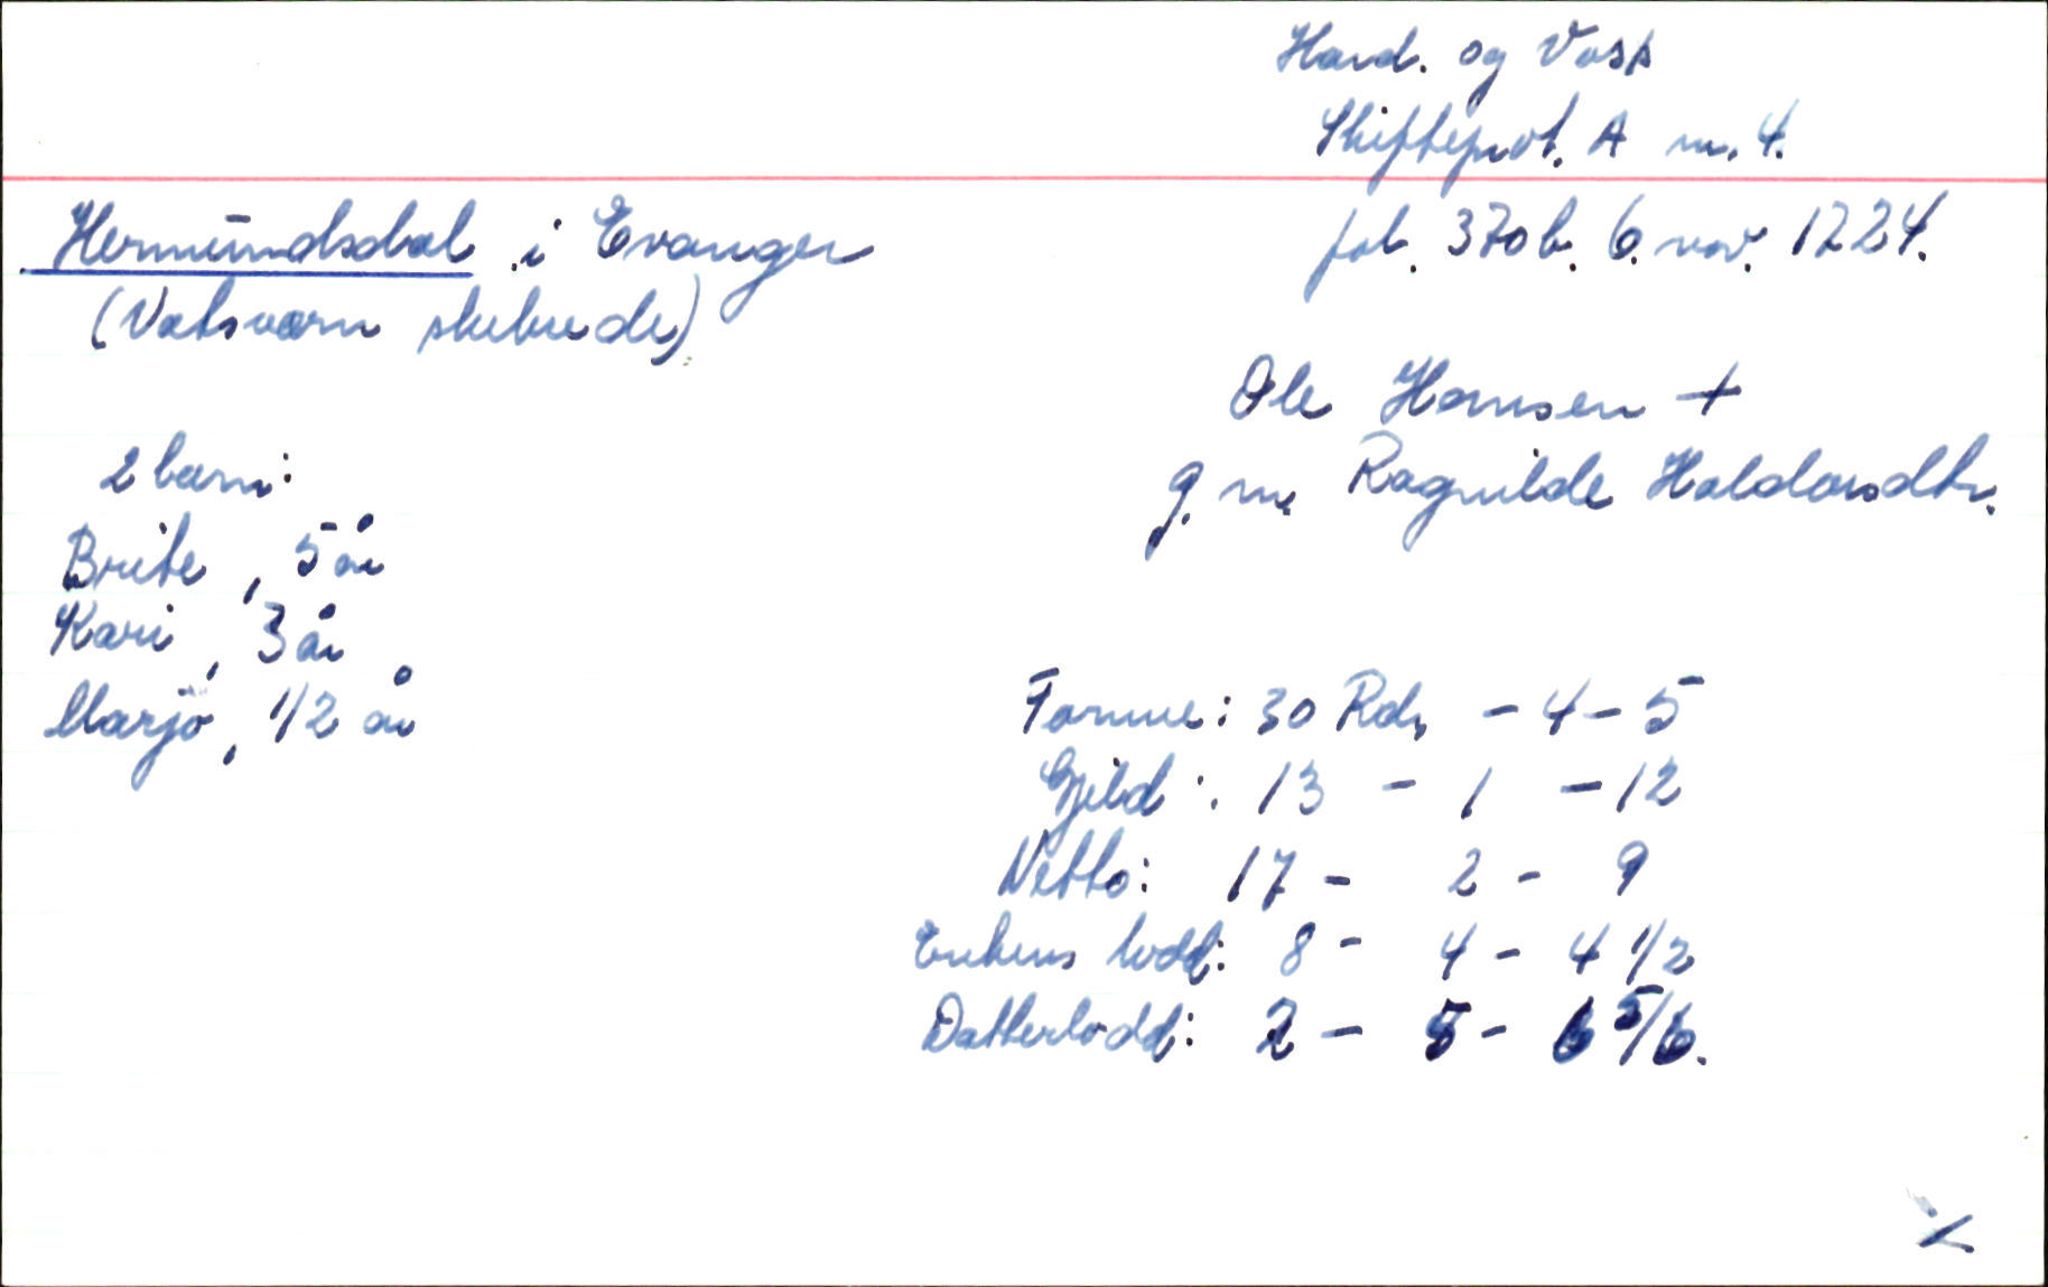 Hard. og Voss
Skifteprot. A nr. 4.
fol. 370b. 6. nov. 1724.
Hermundsdal i Evanger
(Vatsværn skibrede)
Ole Hansen +
g. m. Ragnilde Haldorsdtr.
2 barn:
Brite, 5 år
Kari, 3 år
Marjo, 1/2 år
Formue: 30 Rdr. - 4 - 5
Gjeld: 13 - 1 - 12
Netto: 17 - 2 - 9
Enkens lodd: 8 - 4 - 4 1/2
Datterlodd: 2 - 5 - 6 5/6.